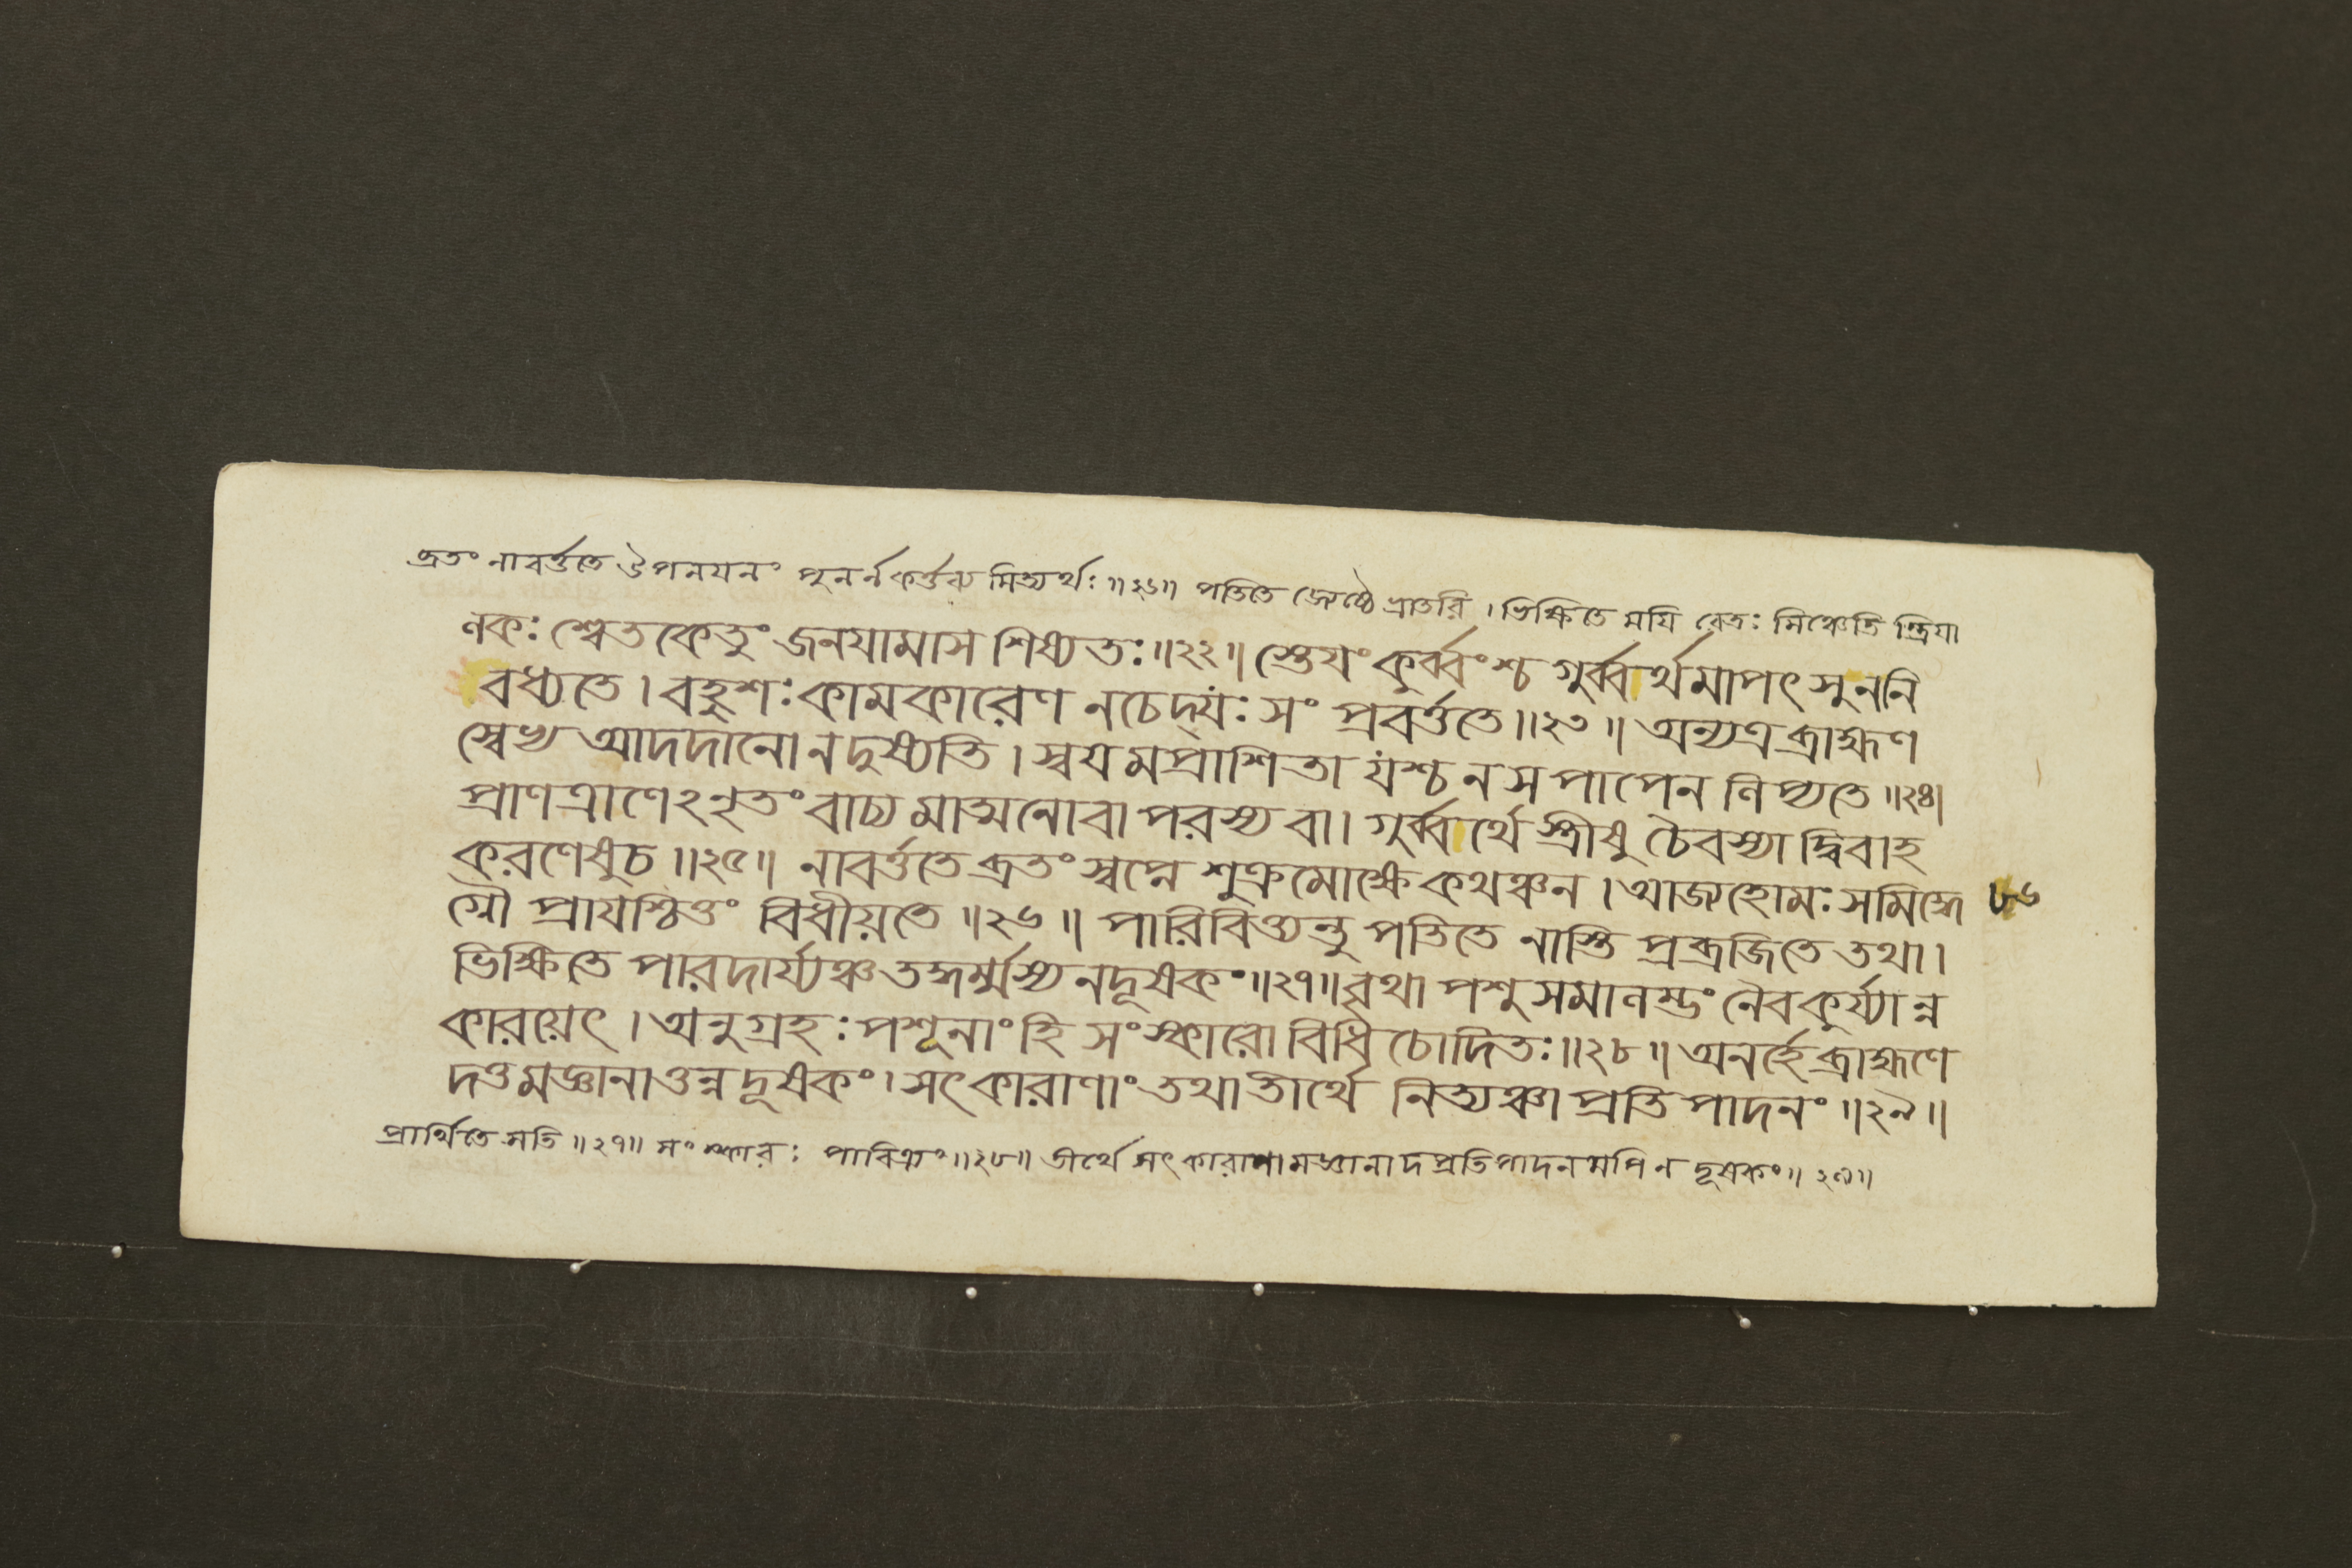 ব্রতং নাবর্ত্ততে উপনযনং পুনর্ন কর্ত্তব্য মিত্যর্থঃ॥২৬॥ পতিতে জ্যেষ্ঠে ভ্রাতরি । ভিক্ষিতে মযি রেতঃ সিঞ্চেতি স্ত্রিযা
ণকঃ শ্বেতকেতুং জনযামাস শিষ্যতঃ॥২২॥ স্তেযং কুর্ব্বংশ্চ গুর্ব্বর্থমাপৎসু ন নি
বধ্যতে । বহুশঃ কামকারেণ নচেদ্যঃ সং প্রবর্ত্ততে॥২৩॥ অন্যত্র ব্রাহ্মণ
স্বেভ্য আদদানো ন দুষ্যতি । স্বযমপ্রাশিতা যশ্চ ন স পাপেন লিপ্যতে॥২৪।
প্রাণত্রাণেঽনৃতং বাচ্য মাত্মনো বা পরস্য বা । গুর্ব্বর্থে স্ত্রীষু চৈবস্যাদ্বিবাহ
করণেষুচ॥২৫॥ নাবর্ত্ততে ব্রতং স্বপ্নে শুক্রমোক্ষে কথঞ্চন । আজ্যহোমঃ সমিদ্ধে ৮৬
গ্নৌ প্রাযশ্চিত্তং বিধীয়তে॥২৬॥ পারিবিত্ত্যন্তু পতিতে নাস্তি প্রব্রজিতে তথা ।
ভিক্ষিতে পারদার্য্যঞ্চ তদ্ধর্ম্মস্য নদূষকং॥২৭॥ বৃথা পশুসমালম্ভং নৈবকুর্য্যান্ন
কারযেৎ । অনুগ্রহঃ পশূনাং হি সংস্কারো বিধি চোদিতঃ॥২৮॥ অনর্হে ব্রাহ্মণে
দত্তমজ্ঞানাত্তন্ন দূষকং । সৎকারাণাং তথা তীর্থে নিত্যঞ্চা প্রতিপাদনং॥২৯॥
প্রার্থিতে সতি॥২৭॥ সংস্কারঃ পাবিত্র্যং॥২৮॥ তীর্থে সৎকারাণামজ্ঞানাদপ্রতিপাদনমপি ন দূষকং॥২৯॥